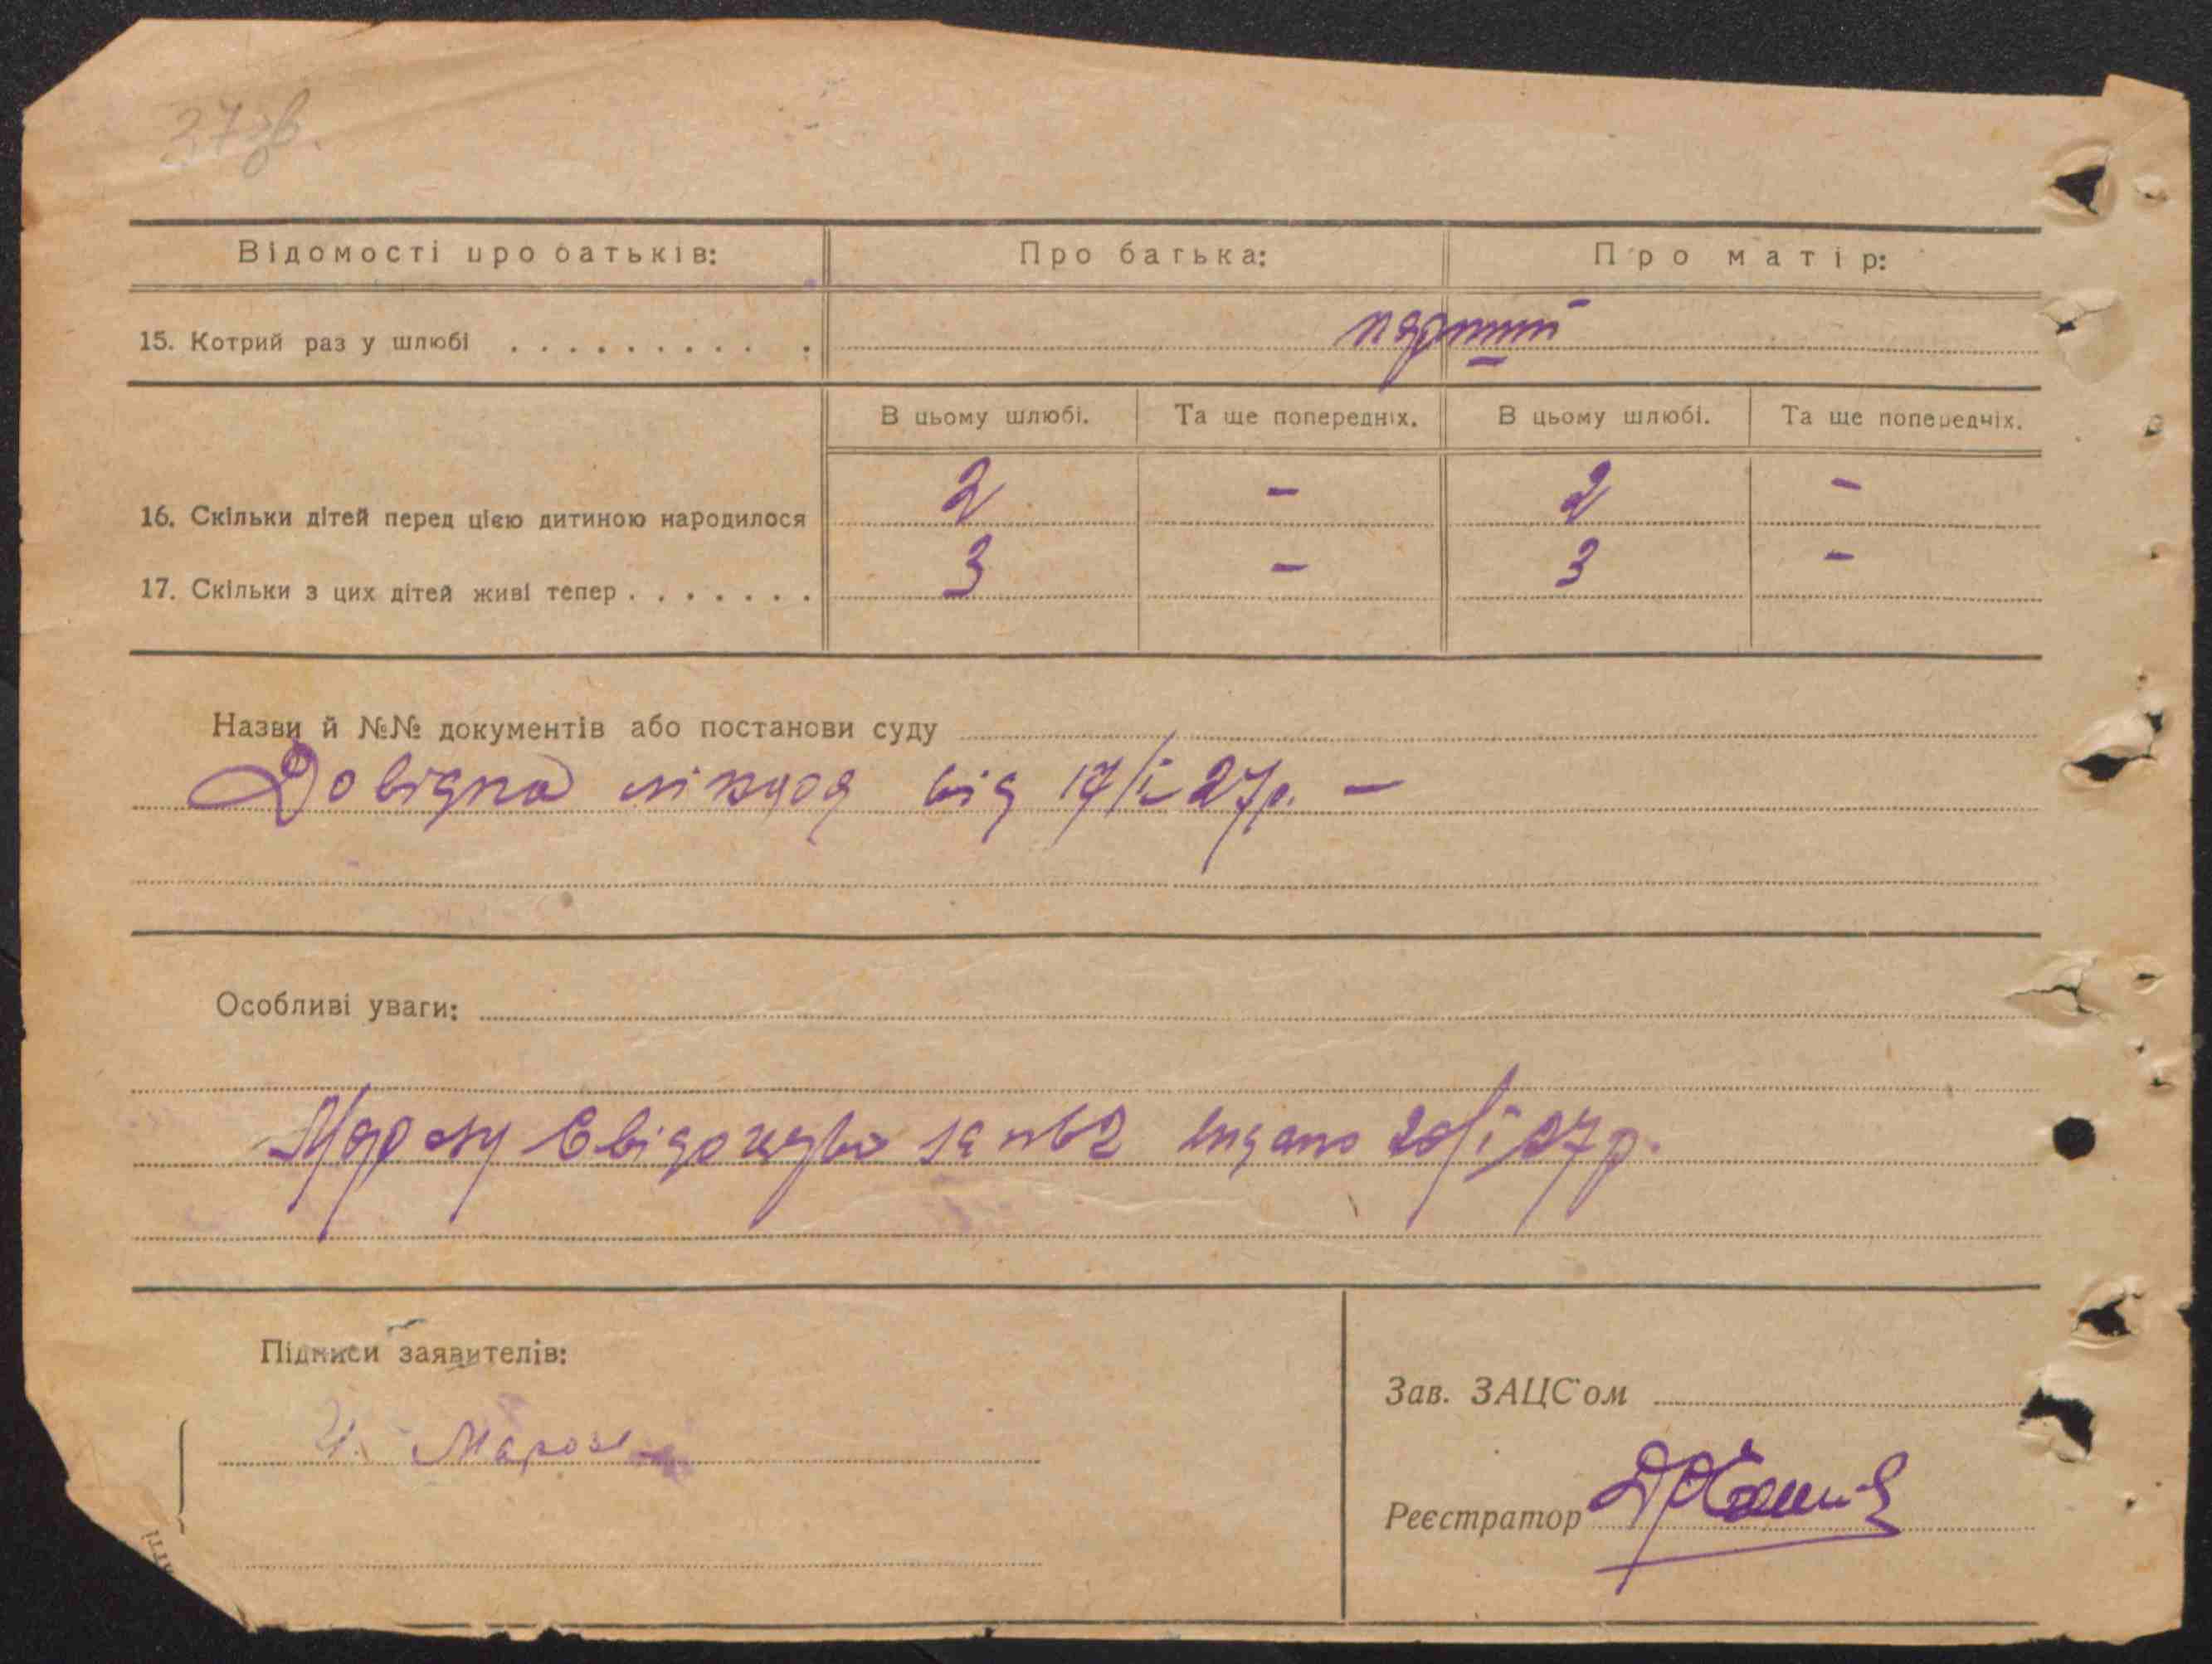 37зв.
Відомості про батьків: Про батька: Про матір:
15. Котрий раз у шлюбі . . . . . . . . . . . перший
В цьому шлюбі. Та ще попередніх. В цьому шлюбі. Та ще попередніх.
16. Скільки дітей перед цією дитиною народилося 2 - 2 -
17. Скільки з цих дітей живі тепер . . . . . . . 3 - 3 -
Назви й №№ документів або постанови суду
Довідка лікаря від 17/I 27р. -
Особливі уваги:
Морозу Свідоцтво за №62 видано 20/I 27р.
Підписи заявителів:
Мороз
Зав. ЗАЦС'ом
Реєстратор